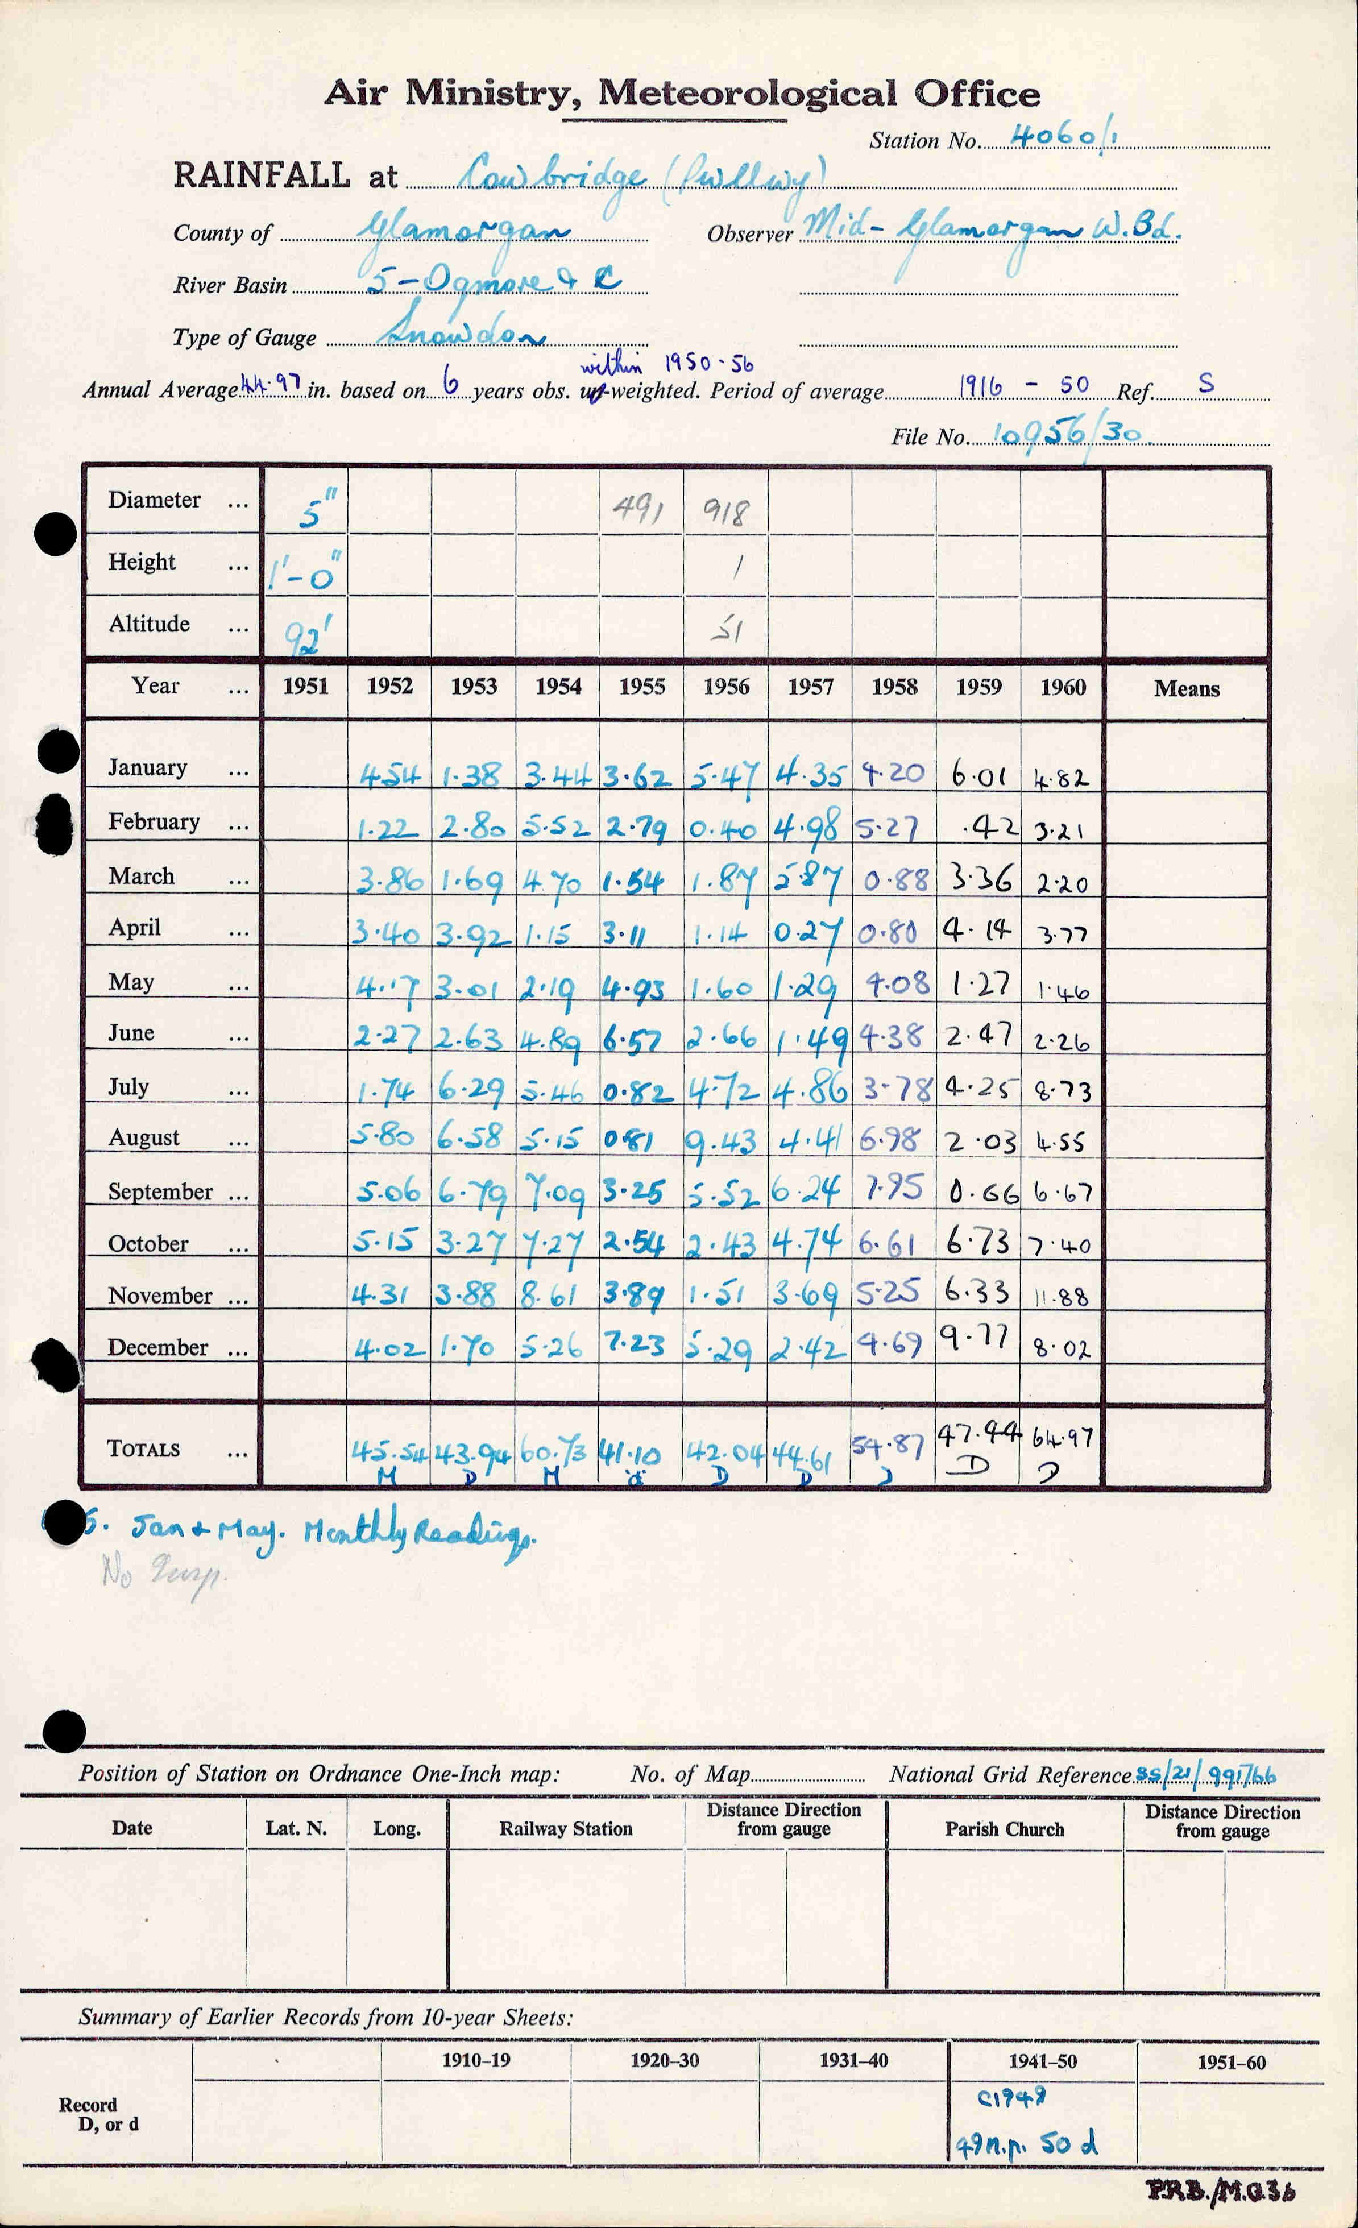 Air Ministry, Meteorological Office
Station No. 4060/1
RAINFALL at Cowbridge (Pwllwy)
County of Glamorgan Observer Mid-Glamorgan W.Bd.
River Basin 5-Ogmore & C
Type of Gauge Snowdon
within 1950-56
Annual Average 44.97 in. based on 6 years obs. weighted. Period of average 1916 - 50 Ref. S
File No. 10956/30
Diameter ... 5" 491 918
Height ... 1'-0" 1
Altitude ... 92' 51
Year ... 1951 1952 1953 1954 1955 1956 1957 1958 1959 1960 Means
January ... 4.54 1.38 3.44 3.62 5.47 4.35 4.20 6.01 4.82
February ... 1.22 2.80 5.52 2.79 0.40 4.98 5.27 .42 3.21
March ... 3.86 1.69 4.70 1.54 1.87 5.87 0.88 3.36 2.20
April ... 3.40 3.92 1.15 3.11 1.14 0.27 0.80 4.14 3.77
May ... 4.17 3.01 2.19 4.93 1.60 1.29 4.08 1.27 1.46
June ... 2.27 2.63 4.89 6.57 2.66 1.49 4.38 2.47 2.26
July ... 1.74 6.29 5.46 0.82 4.72 4.86 3.78 4.25 8.73
August ... 5.80 6.58 5.15 0.81 9.43 4.41 6.98 2.03 4.55
September ... 5.06 6.79 7.09 3.25 5.52 6.24 7.95 0.66 6.67
October ... 5.15 3.27 7.27 2.54 2.43 4.74 6.61 6.73 7.40
November ... 4.31 3.88 8.61 3.89 1.51 3.69 5.25 6.33 11.88
December ... 4.02 1.70 5.26 7.23 5.29 2.42 4.69 9.77 8.02
TOTALS ... 45.54 43.94 60.73 41.10 42.04 44.61 54.87 47.44 64.97
M D M d D D D D D
5. Jan & May. Monthly Readings.
No Insp.
Position of Station on Ordnance One-Inch map: No. of Map National Grid Reference SS/21/991766
Date Lat. N. Long. Railway Station Distance Direction from gauge Parish Church Distance Direction from gauge
Summary of Earlier Records from 10-year Sheets:
1910-19 1920-30 1931-40 1941-50 1951-60
Record
D, or d
C1949
49 n.p. 50 d
P.R.B./M.O.36